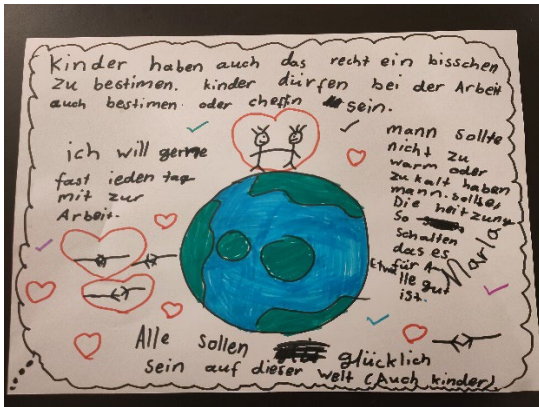 kinder haben auch das recht ein bisschen
zu bestimen. kinder dürfen bei der Arbeit
auch bestimen oder cheffin sein.
ich will gerne
fast jeden tag
mit zur
Arbeit.
mann sollte
nicht zu
warm oder
zu kalt haben
mann sollte
Die heitzung
So
schalten
das es
für A
lle gut
ist.
Marla
Alle sollen glücklich
sein auf dieser welt (Auch kinder).